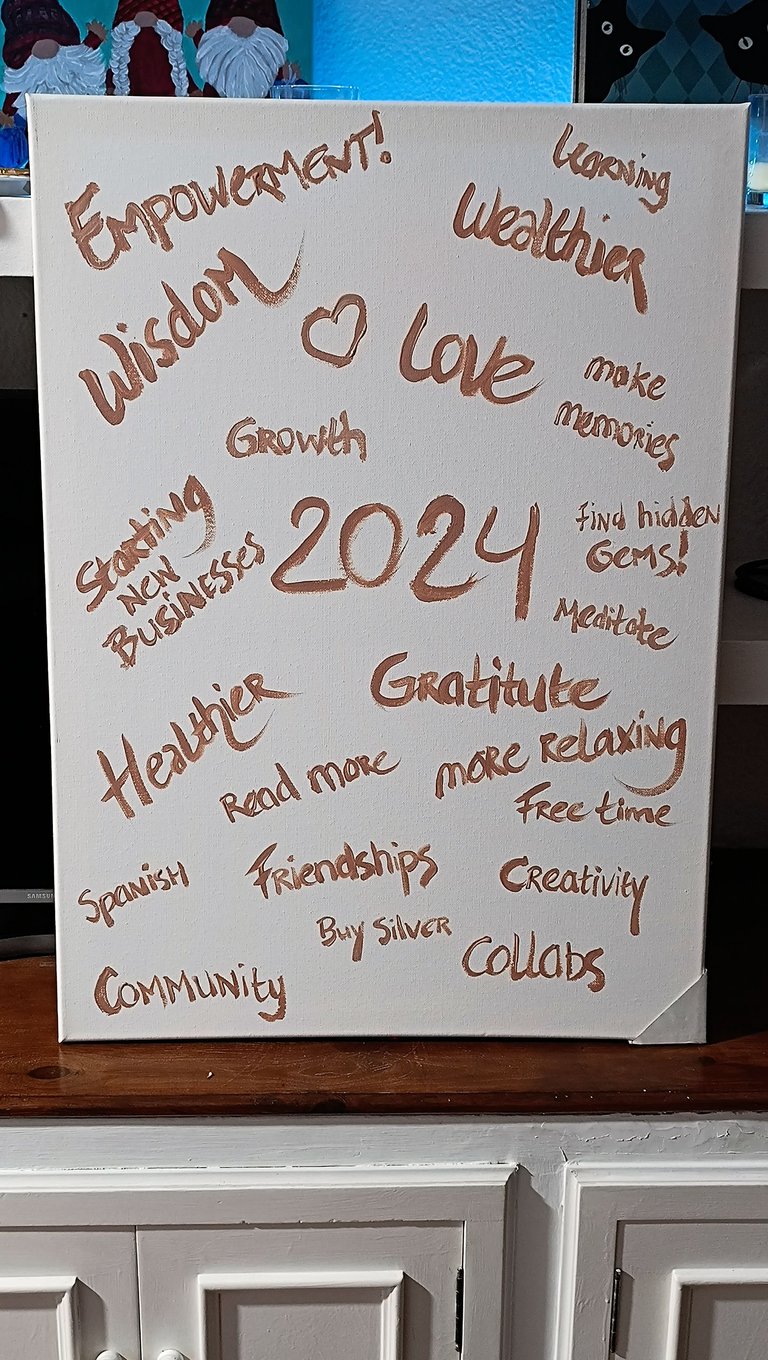 EMPOWERMENT!
Learning
Wealthier
Wisdom
Love
make
memories
Growth
Starting
New
Businesses
2024
Find hidden
Gems!
Meditate
Gratitute
Healthier
more Relaxing
Read more
Free time
Spanish
Friendships
Creativity
Buy Silver
Collabs
Community
SAMSUNG